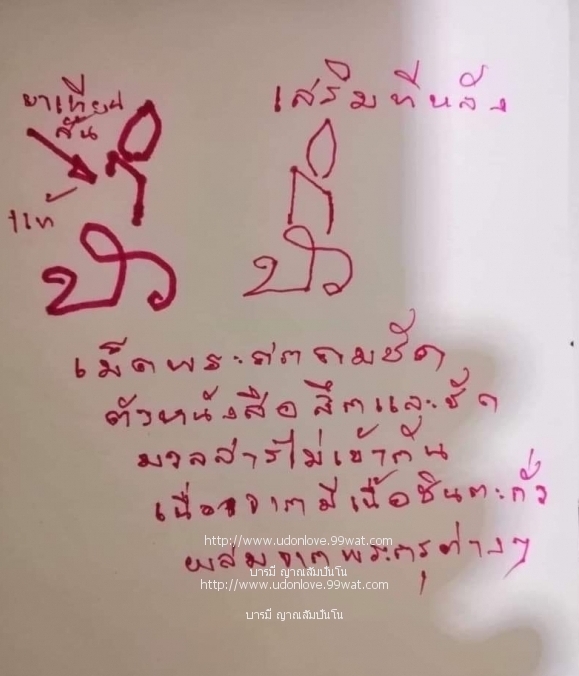 ขาเทียน
สั้น
แท้
เสริมทีหลัง
เม็ดพระศกคมชัด
ตัวหนังสือลึกและชัด
มวลสารไม่เข้ากัน
เนื่องจากมีเนื้อชินตะกั่ว
ผสมจากพระกรุต่างๆ
http://www.udonlove.99wat.com
บารมี ญาณสัมปันโน
http://www.udonlove.99wat.com
บารมี ญาณสัมปันโน